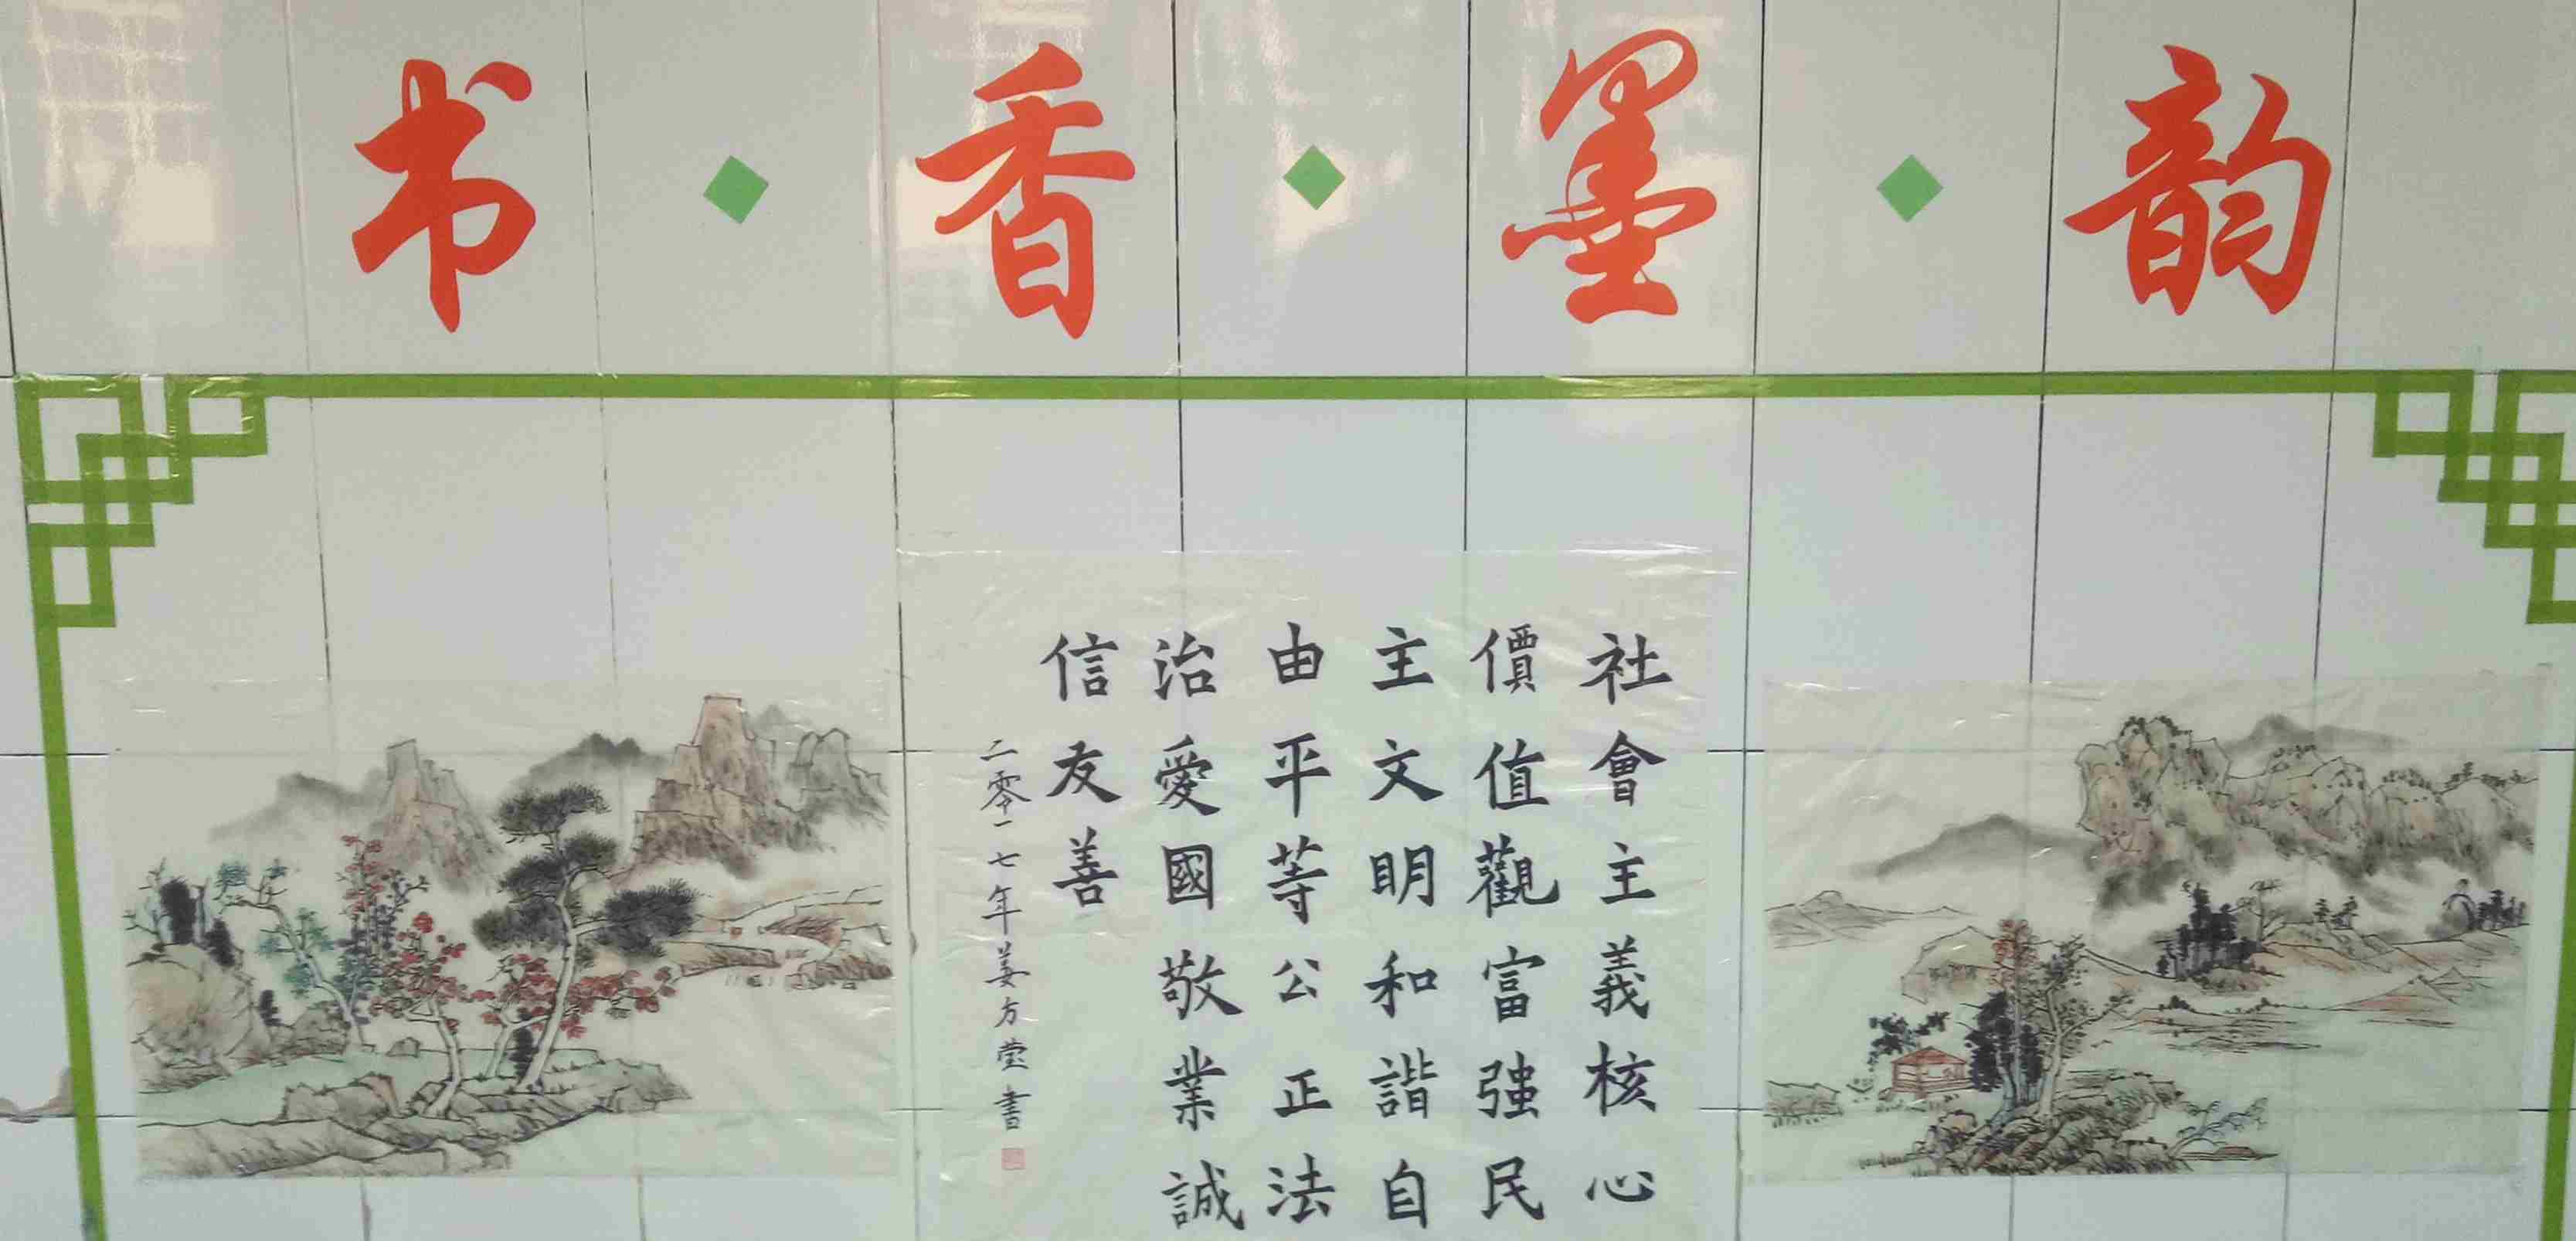 书·香·墨·韵
社會主義核心
價值觀富强民
主文明和諧自
由平等公正法
治愛國敬業誠
信友善
二零一七年姜方莹書